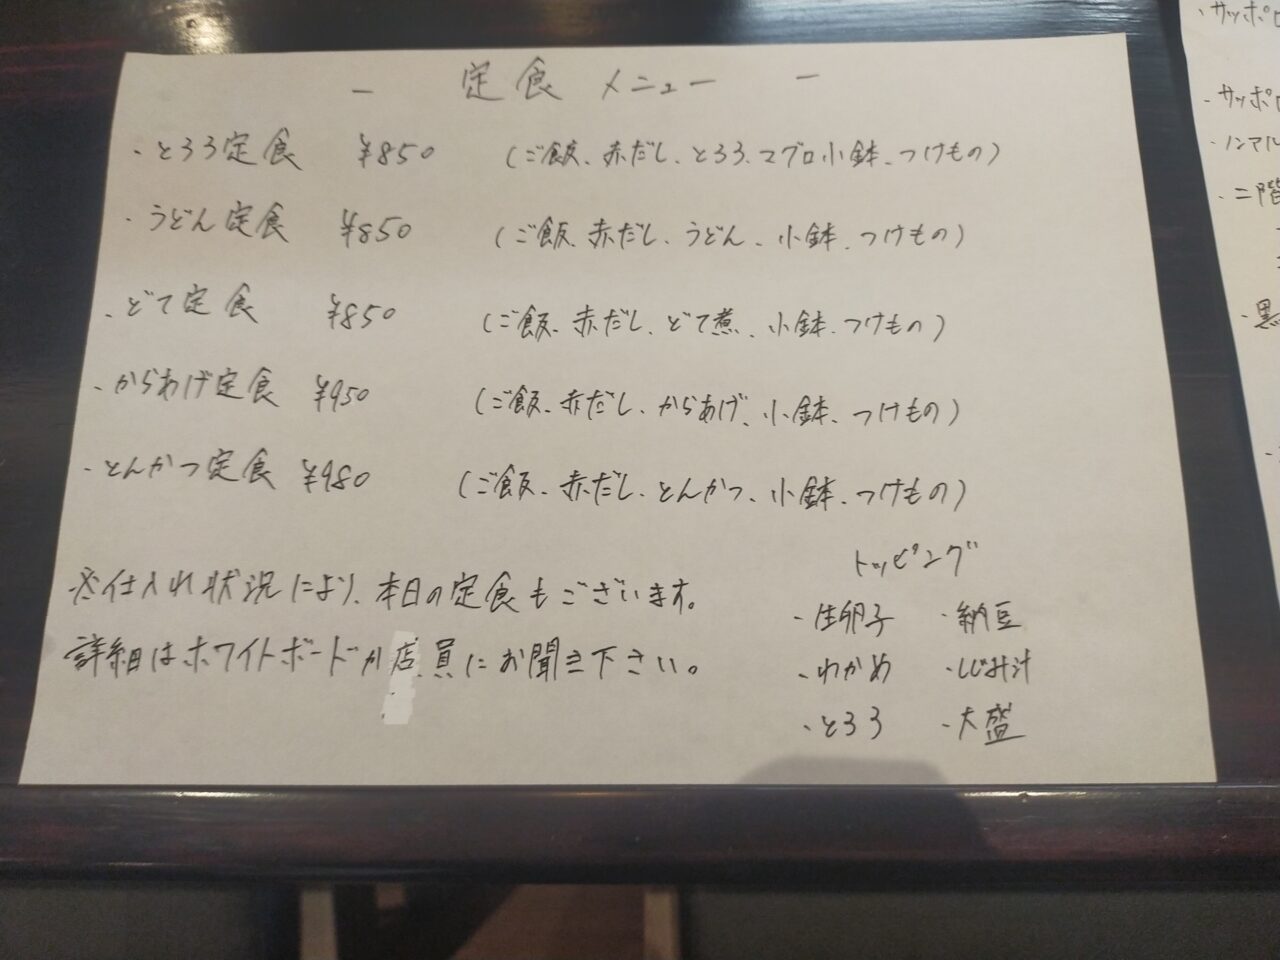 - 定食 メニュー -
・とろろ定食 ¥850 (ご飯、赤だし、とろろ、マグロ小鉢、つけもの)
・うどん定食 ¥850 (ご飯、赤だし、うどん、小鉢、つけもの)
・どて定食 ¥850 (ご飯、赤だし、どて煮、小鉢、つけもの)
・からあげ定食 ¥950 (ご飯、赤だし、からあげ、小鉢、つけもの)
・とんかつ定食 ¥980 (ご飯、赤だし、とんかつ、小鉢、つけもの)
※仕入れ状況により、本日の定食もございます。
詳細はホワイトボードか店員にお聞き下さい。
トッピング
・生卵子 ・納豆
・わかめ ・しじみ汁
・とろろ ・大盛
・サッポロ
・サッポロ
・ノンアル
・二階
・黒